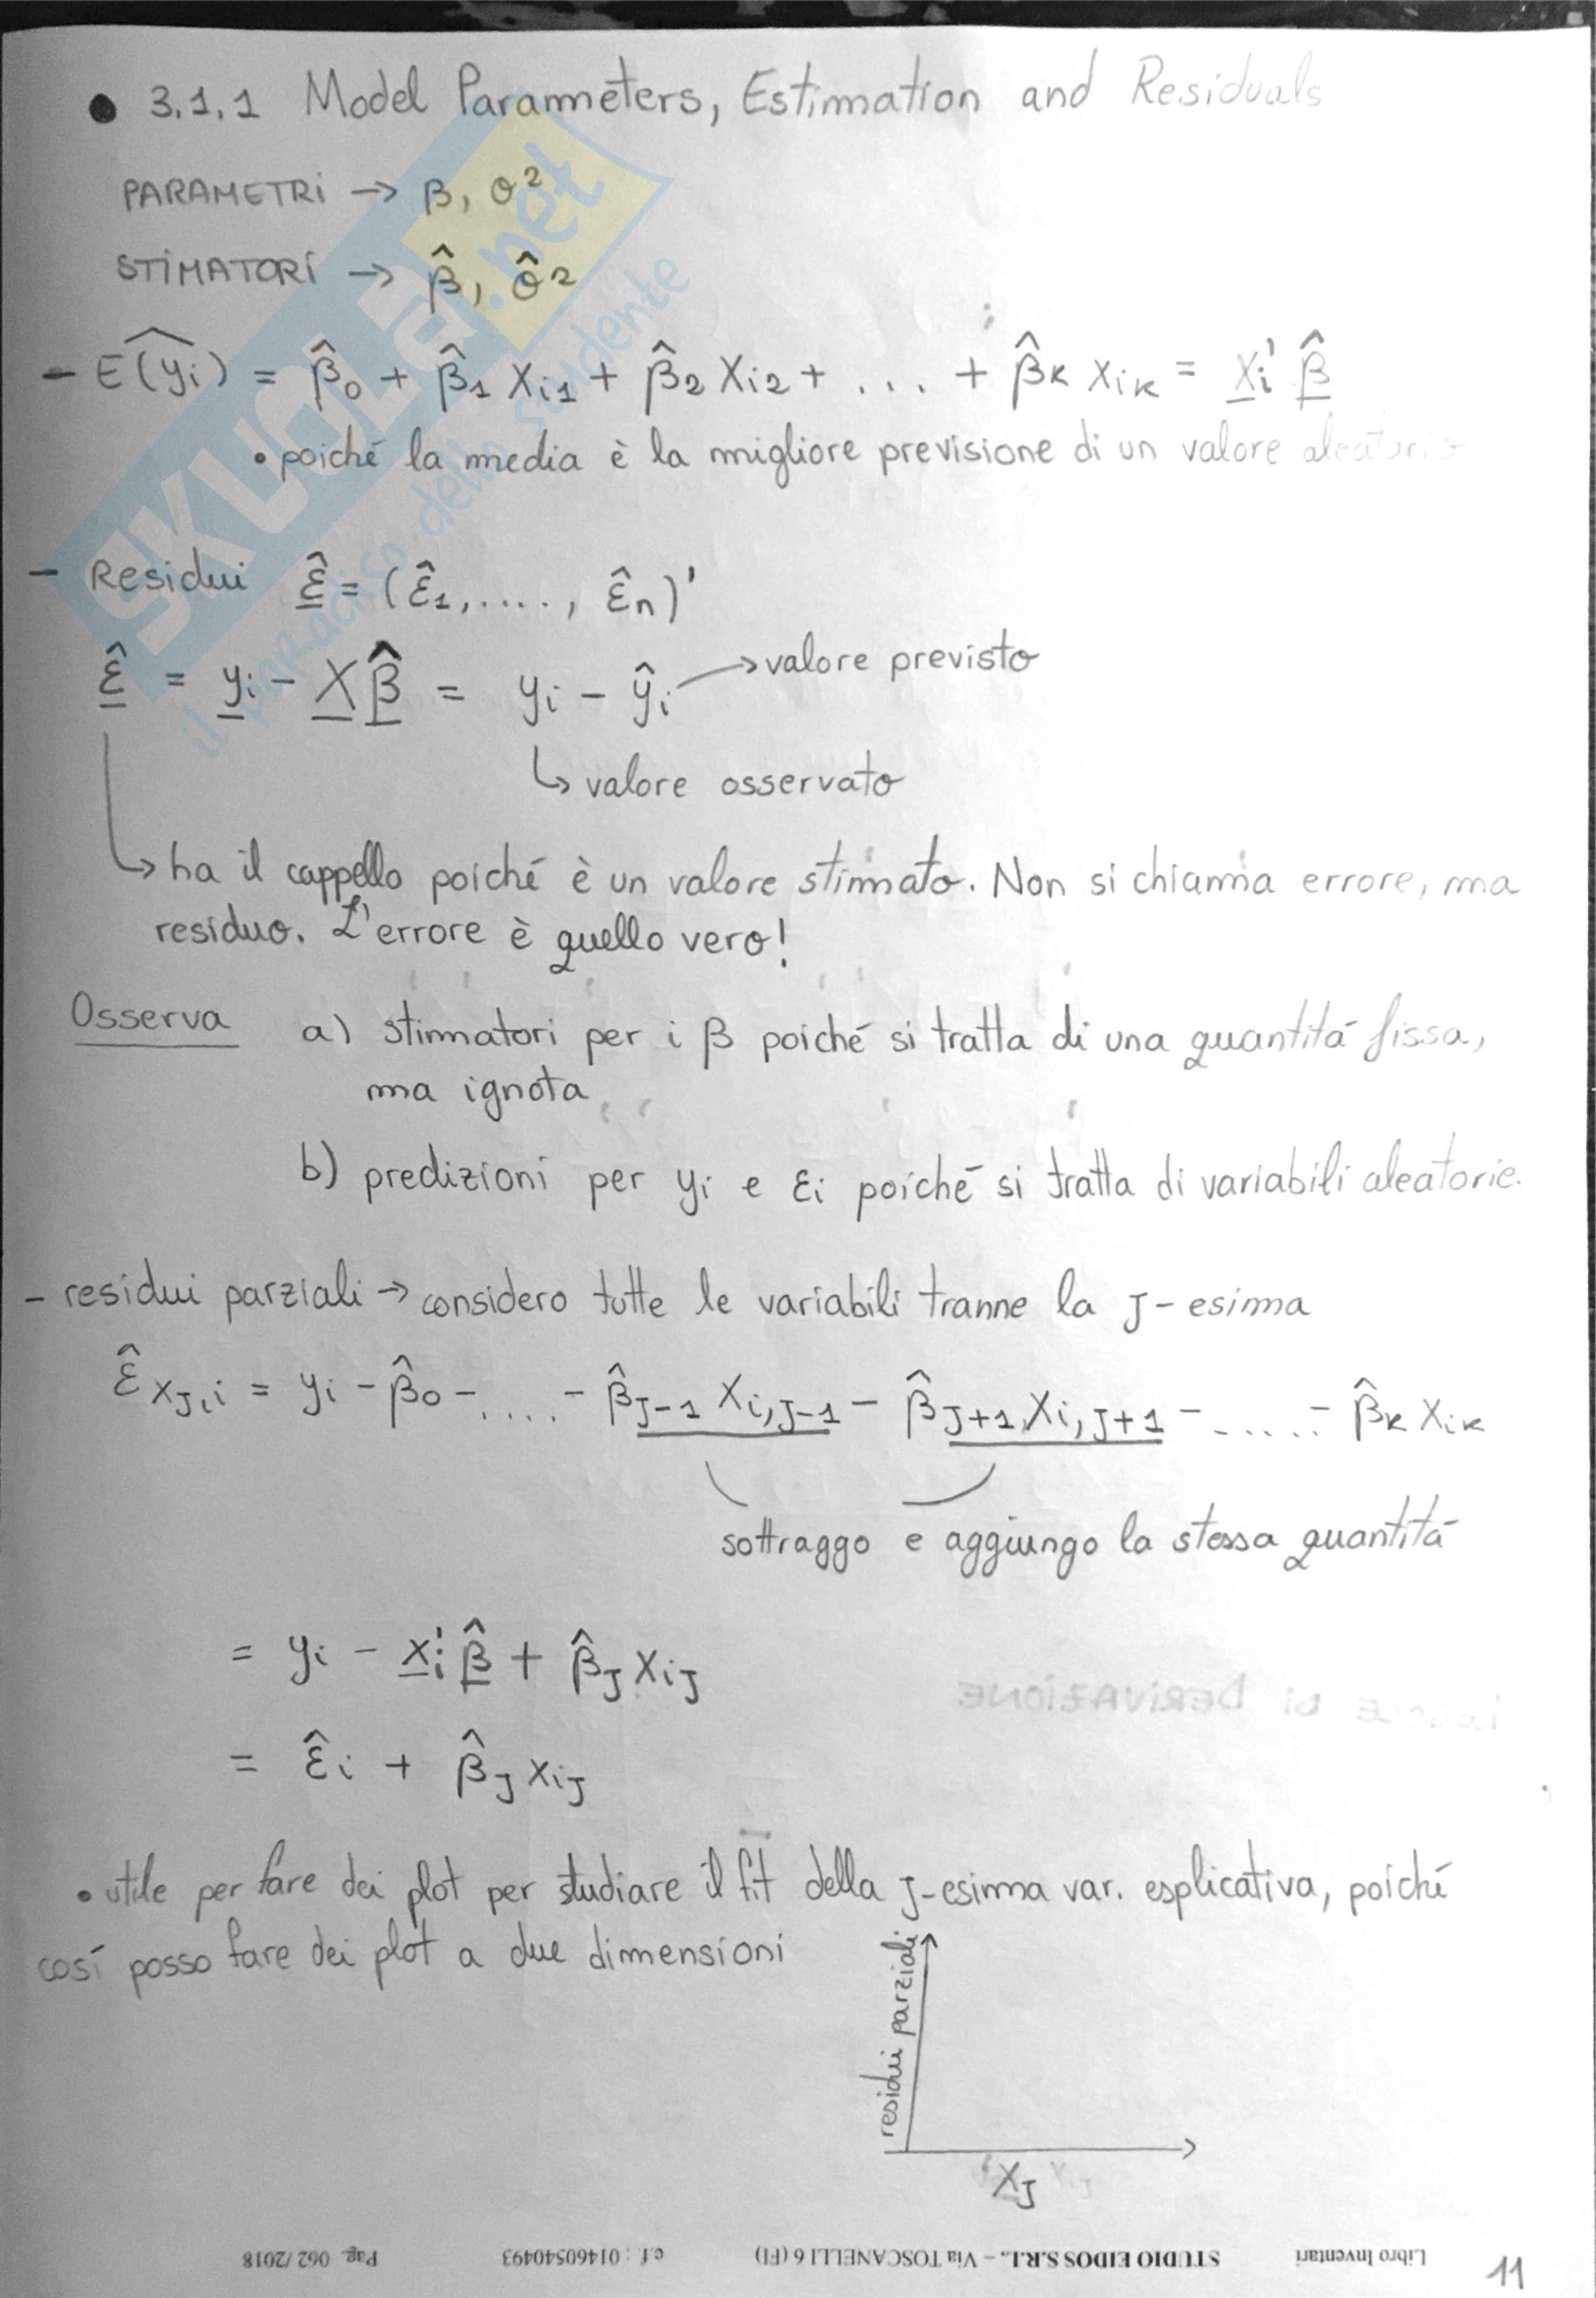 • 3.1.1 Model Parameters, Estimation and Residuals
PARAMETRI → β, σ²
STIMATORI → β̂, σ̂²
- Ê(yᵢ) = β̂₀ + β̂₁ xᵢ₁ + β̂₂ xᵢ₂ + ... + β̂ₖ xᵢₖ = xᵢ' β̂
• poiché la media è la migliore previsione di un valore aleatorio
- Residui ε̂ = (ε̂₁, ...., ε̂ₙ)'
ε̂ = yᵢ - Xβ̂ = yᵢ - ŷᵢ → valore previsto
↳ valore osservato
↳ ha il cappello poiché è un valore stimato. Non si chiama errore, ma
residuo. L'errore è quello vero!
Osserva a) stimatori per i β poiché si tratta di una quantità fissa,
ma ignota
b) predizioni per yᵢ e εᵢ poiché si tratta di variabili aleatorie.
- residui parziali → considero tutte le variabili tranne la J-esima
ε̂ x_J,i = yᵢ - β̂₀ - .... - β̂_J-1 x_i,J-1 - β̂_J+1 x_i,J+1 - ..... - β̂ₖ xᵢₖ
sottraggo e aggiungo la stessa quantità
= yᵢ - xᵢ' β̂ + β̂_J x_iJ
= ε̂ᵢ + β̂_J x_iJ
• utile per fare dei plot per studiare il fit della J-esima var. esplicativa, poiché
così posso fare dei plot a due dimensioni
residui parziali
x_J
Libro Inventari STUDIO EIDOS S.R.L. - Via TOSCANELLI 6 (FI) c.f. : 01460540493 Pag. 062/2018
11
SKUOLA.net
il paradiso dello studente